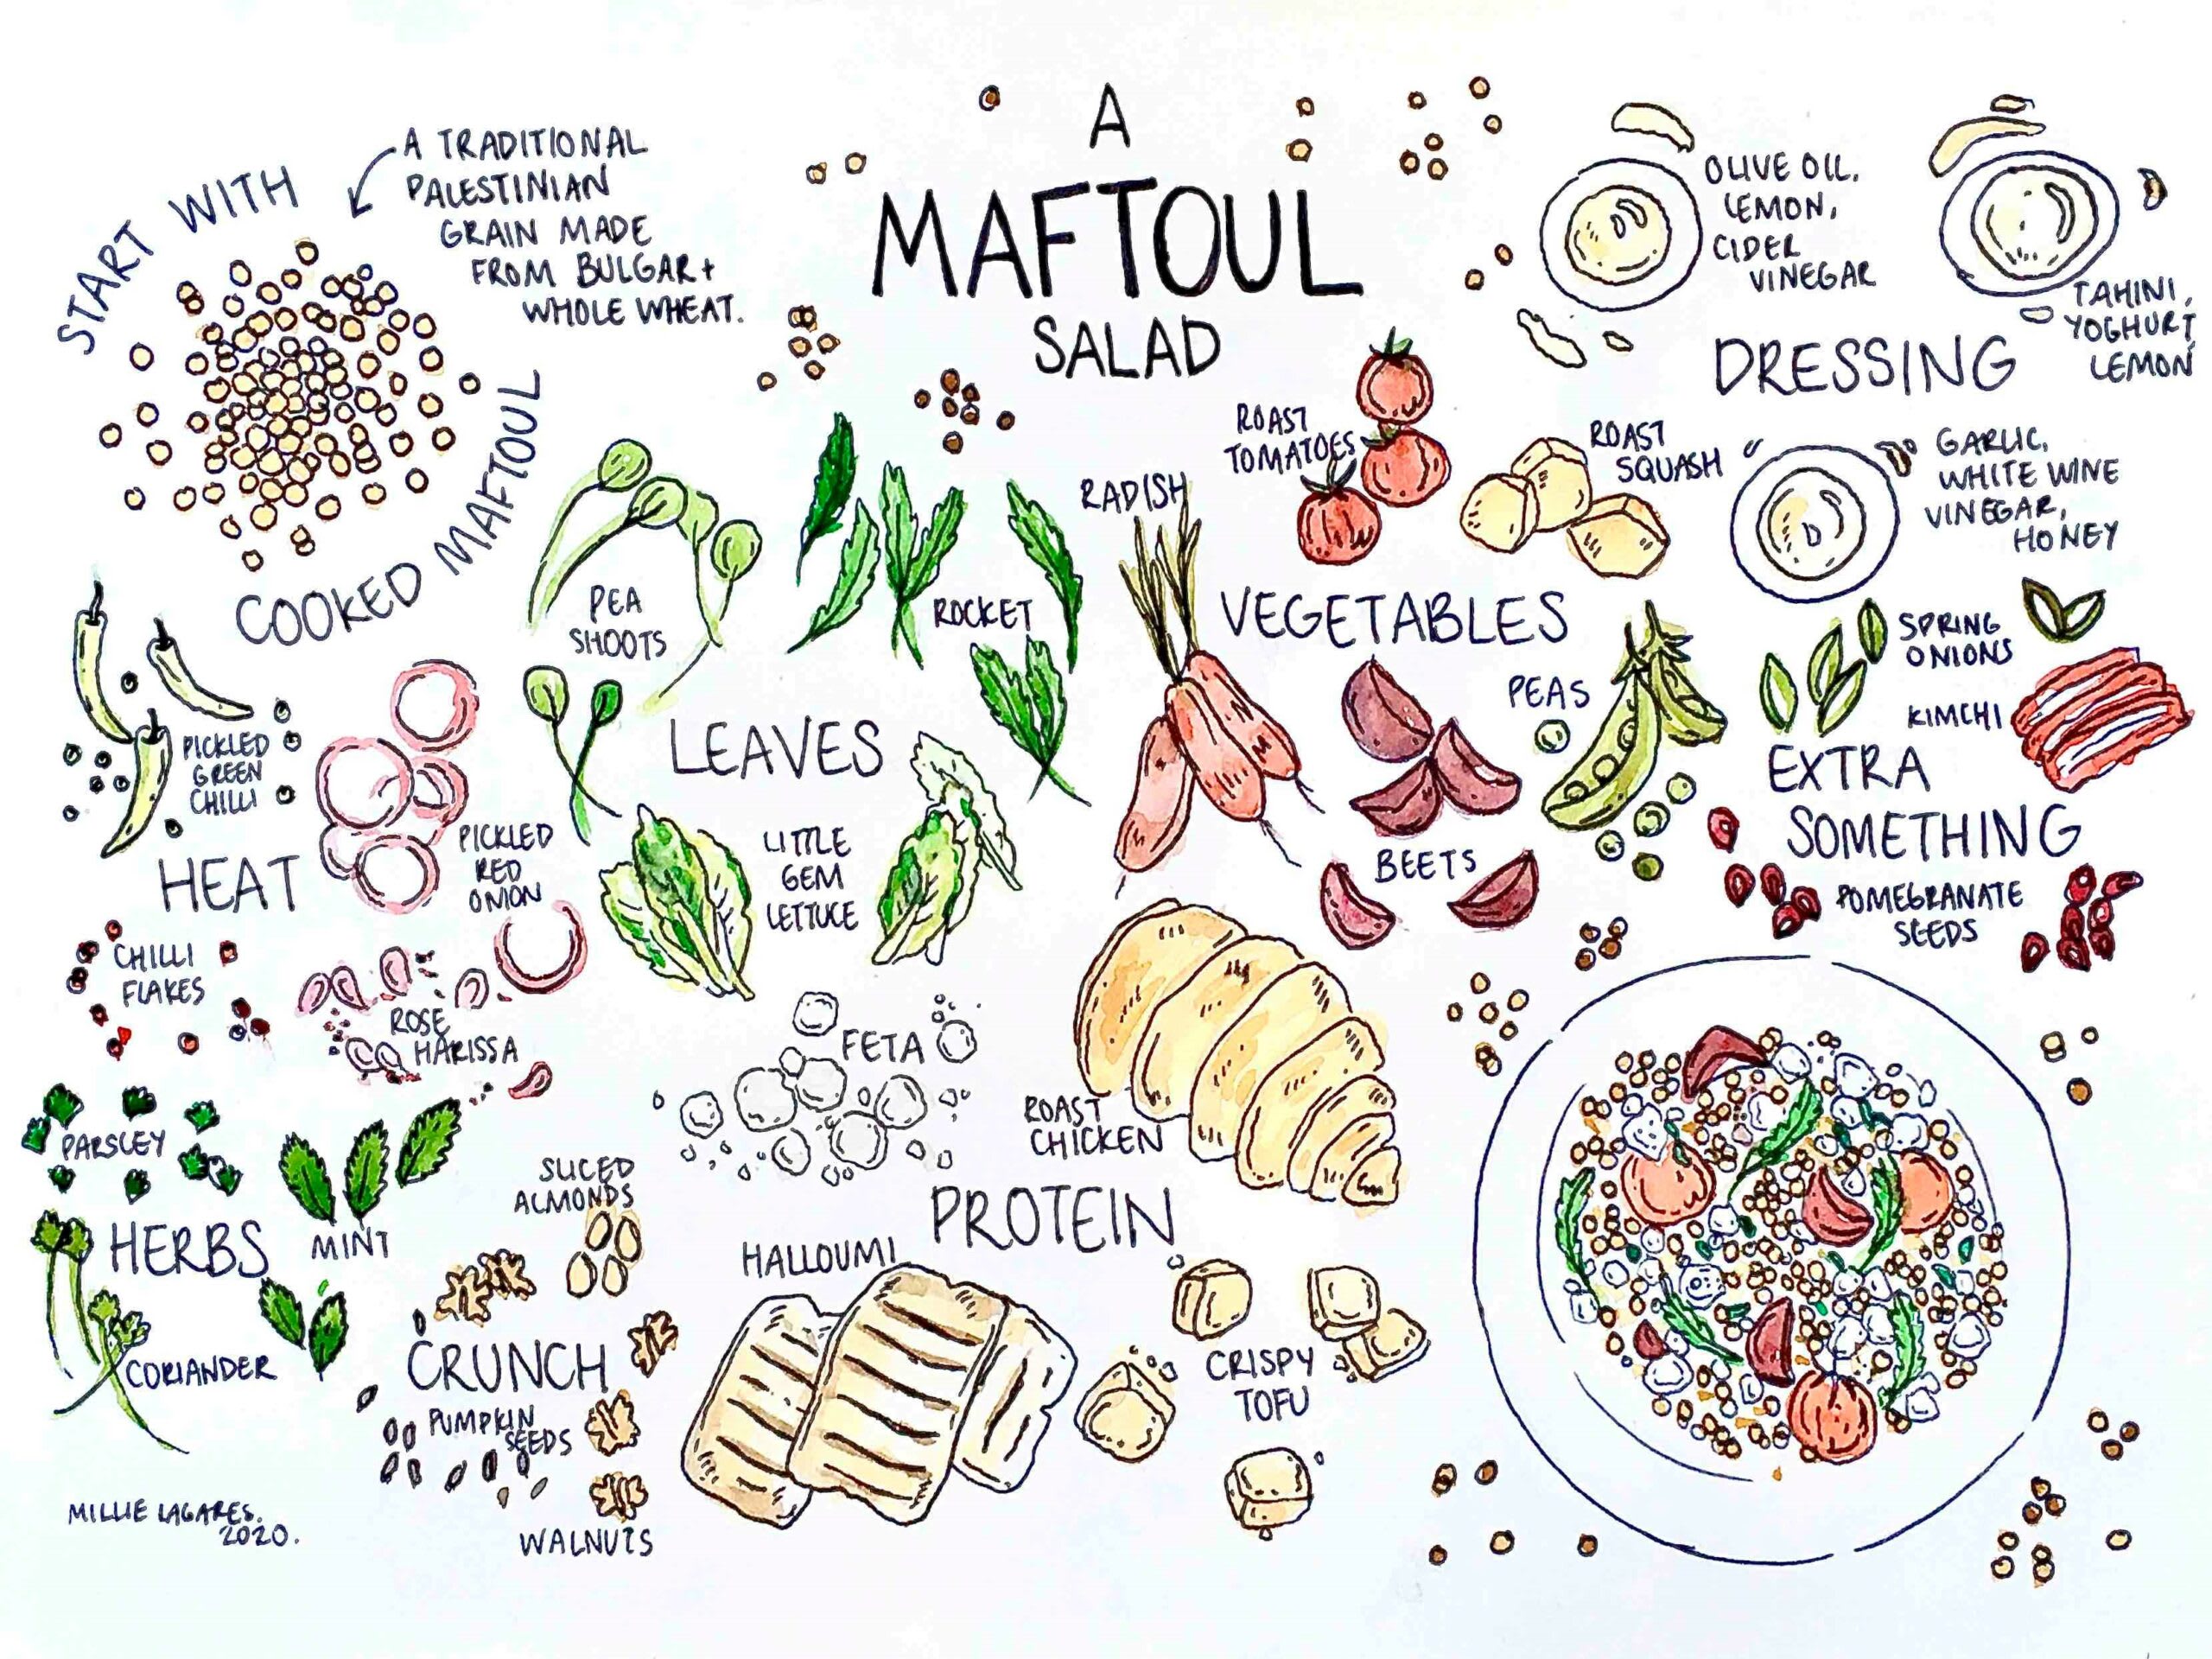 A
MAFTOUL
SALAD
START WITH
COOKED MAFTOUL
A TRADITIONAL
PALESTINIAN
GRAIN MADE
FROM BULGAR +
WHOLE WHEAT.
OLIVE OIL,
LEMON,
CIDER
VINEGAR
TAHINI,
YOGHURT,
LEMON
DRESSING
GARLIC,
WHITE WINE
VINEGAR,
HONEY
PEA
SHOOTS
ROCKET
LEAVES
LITTLE
GEM
LETTUCE
RADISH
ROAST
TOMATOES
ROAST
SQUASH
VEGETABLES
PEAS
BEETS
SPRING
ONIONS
KIMCHI
EXTRA
SOMETHING
POMEGRANATE
SEEDS
PICKLED
GREEN
CHILLI
HEAT
PICKLED
RED
ONION
CHILLI
FLAKES
ROSE
HARISSA
PARSLEY
HERBS
MINT
CORIANDER
SLICED
ALMONDS
CRUNCH
PUMPKIN
SEEDS
WALNUTS
FETA
ROAST
CHICKEN
PROTEIN
HALLOUMI
CRISPY
TOFU
MILLIE LAGARES.
2020.